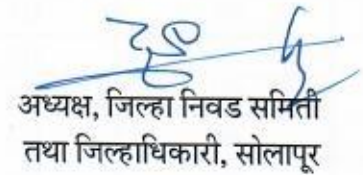 अध्यक्ष, जिल्हा निवड समिती
तथा जिल्हाधिकारी, सोलापूर